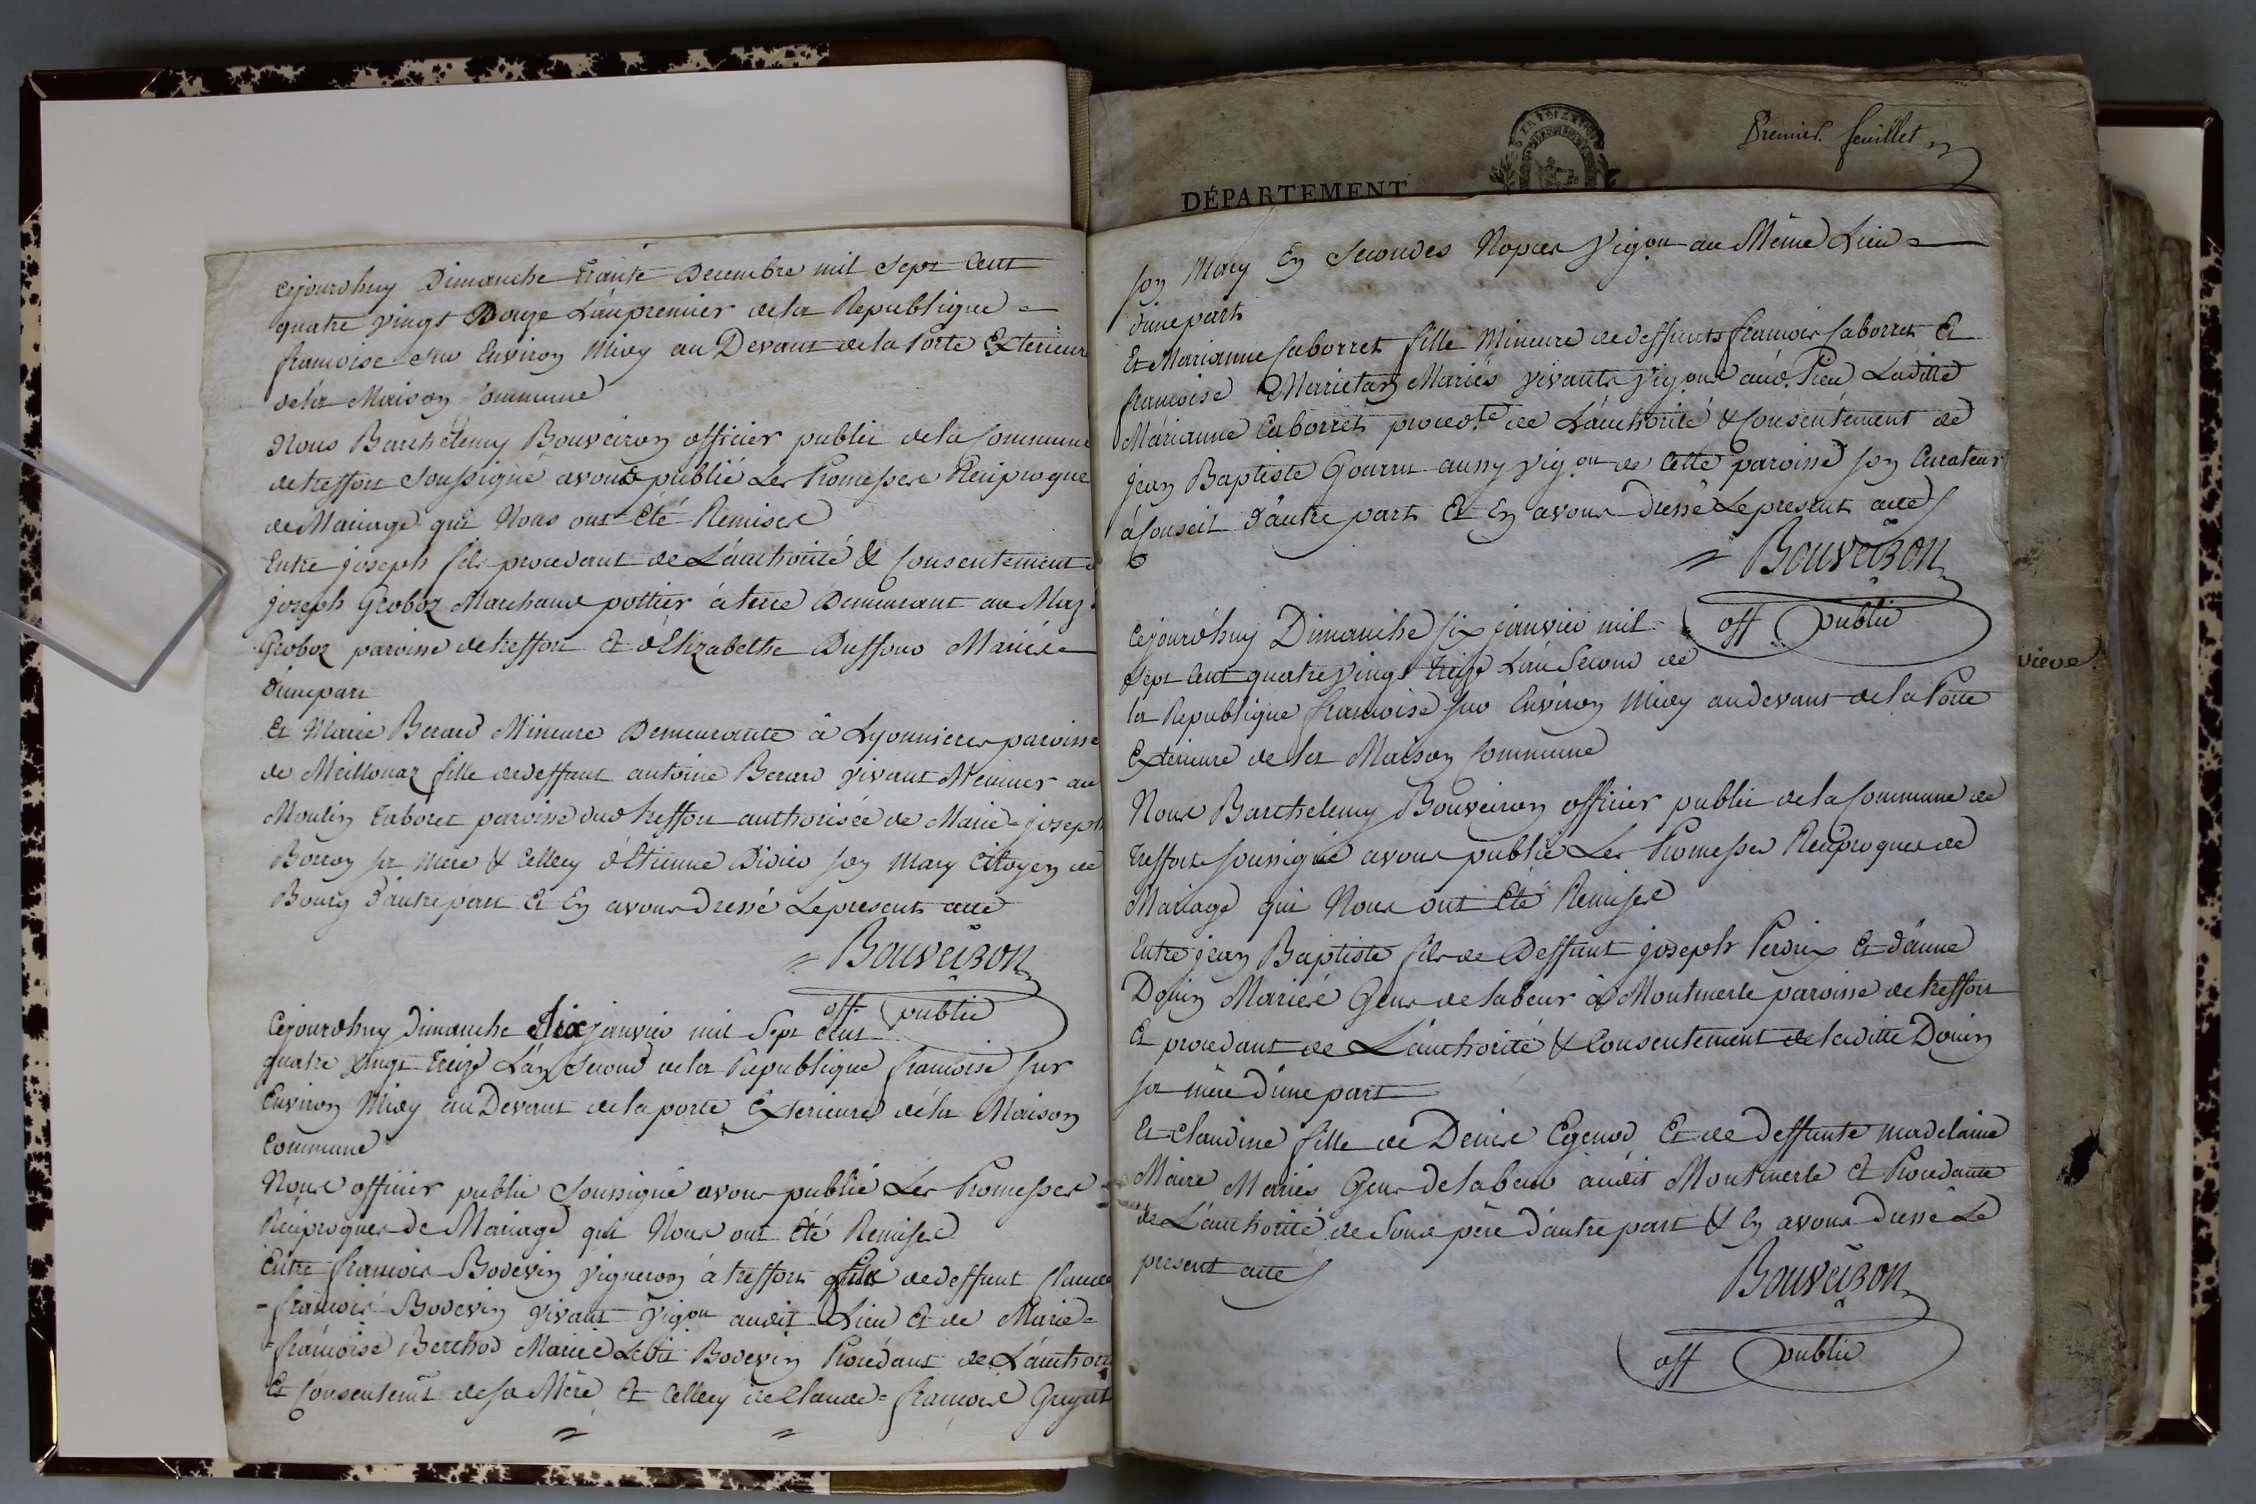 cejourdhuy Dimanche trante Decembre mil sept Cent
quatre vingt Douze L'an premier de la Republique =
francoise sur Environ Midy au Devant de la Porte Exterieure
de la Maison Commune
Nous Barthelemy Bouveiron officier public de la Commune
de treffort soussigné avons publié Les Promesses Reciproque
de Mariage qui Nous ont Eté Remises
Entre joseph fils procedant de L'authorité & Consentement d
joseph Groboz Marchand pottier á terre Demeurant au Maz
Groboz paroisse de treffort Et d'Elizabethe Duffour Mariés
d'une part
Et Marie Berard Mineure Demeurante á Lyonnieres paroisse
de Meillonaz fille de deffunt antoine Berard vivant Meunier au
Moulin taboret paroisse dud treffort authorisée de Marie = joseph
Borron sa mere & Celley d'Etienne Didier son Mary Citoyen de
Bourg d'autre part Et En avons dressé Le present acte
= Bouveiron
off public
Cejourdhuy Dimanche Six janvier mil Sept Cent
quatre vingt treize L'an Second de la Republique francoise sur
Environ Midy au Devant de la porte Exterieure de la Maison
Commune
Nous officier public soussigné avons publié Les Promesses
Reciproques de Mariage qui Nous ont Eté Remises
Entre francois Bodevin vigneron á treffort fils de deffunt Claude
= francois Bodevin vivant vigon audit Lieu Et de Marie =
= francoise Berthod Mariés Ledit Bodevin Procédant de L'authori
Et Consentemt de sa Mere Et Celley de Claude = francois
DÉPARTEMENT
Premier feuillet
son Mary En Secondes Nopces vigon au Même Lieu
d'une part
Et Marianne Caborret fille Mineure de deffunts francois Caborret Et
francoise Marietan Mariés vivants vigons aud. Lieu Laditte
Marianne Caborret procedte de L'authorité & Consentement de
jean Baptiste Gourru aussy vigon de Cette paroisse son Curateur
á Conseil d'autre part Et En avons Dressé Le present acte
= Bouveiron
off public
Cejourdhuy Dimanche six janvier mil
sept Cent quatre vingt treize L'an Second de
la Republique francoise sur Environ Midy au devant de la Porte
Exterieure de la Maison Commune
Nous Barthelemy Bouveiron officier public de la Commune de
treffort soussigné avons publié Les Promesses Reciproques de
Mariage qui Nous ont Eté Remises
Entre jean Baptiste fils de Deffunt joseph Perdrix Et d'anne
Douin Mariés Gens de labeur á Montmerle paroisse de treffort
Et procedant de L'authorité & Consentement de laditte Douin
sa mere d'une part
Et Claudine fille de Denis Egenod Et de deffunte madelaine
Maire Mariés Gens de labeur audit Montmerle Et Procedante
de L'authorité de Sond père d'autre part & En avons dressé Le
present acte
Bouveiron
off public
vieve